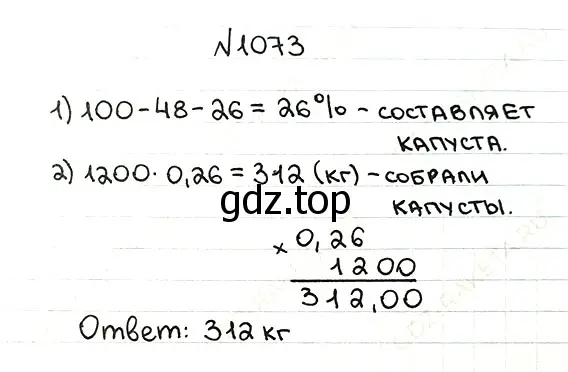 №1073
1) 100-48-26 = 26% - СОСТАВЛЯЕТ
КАПУСТА.
2) 1200 · 0,26 = 312 (кг) - СОБРАЛИ
КАПУСТЫ.
gdz.top
× 0,26
1200
312,00
Ответ: 312 кг